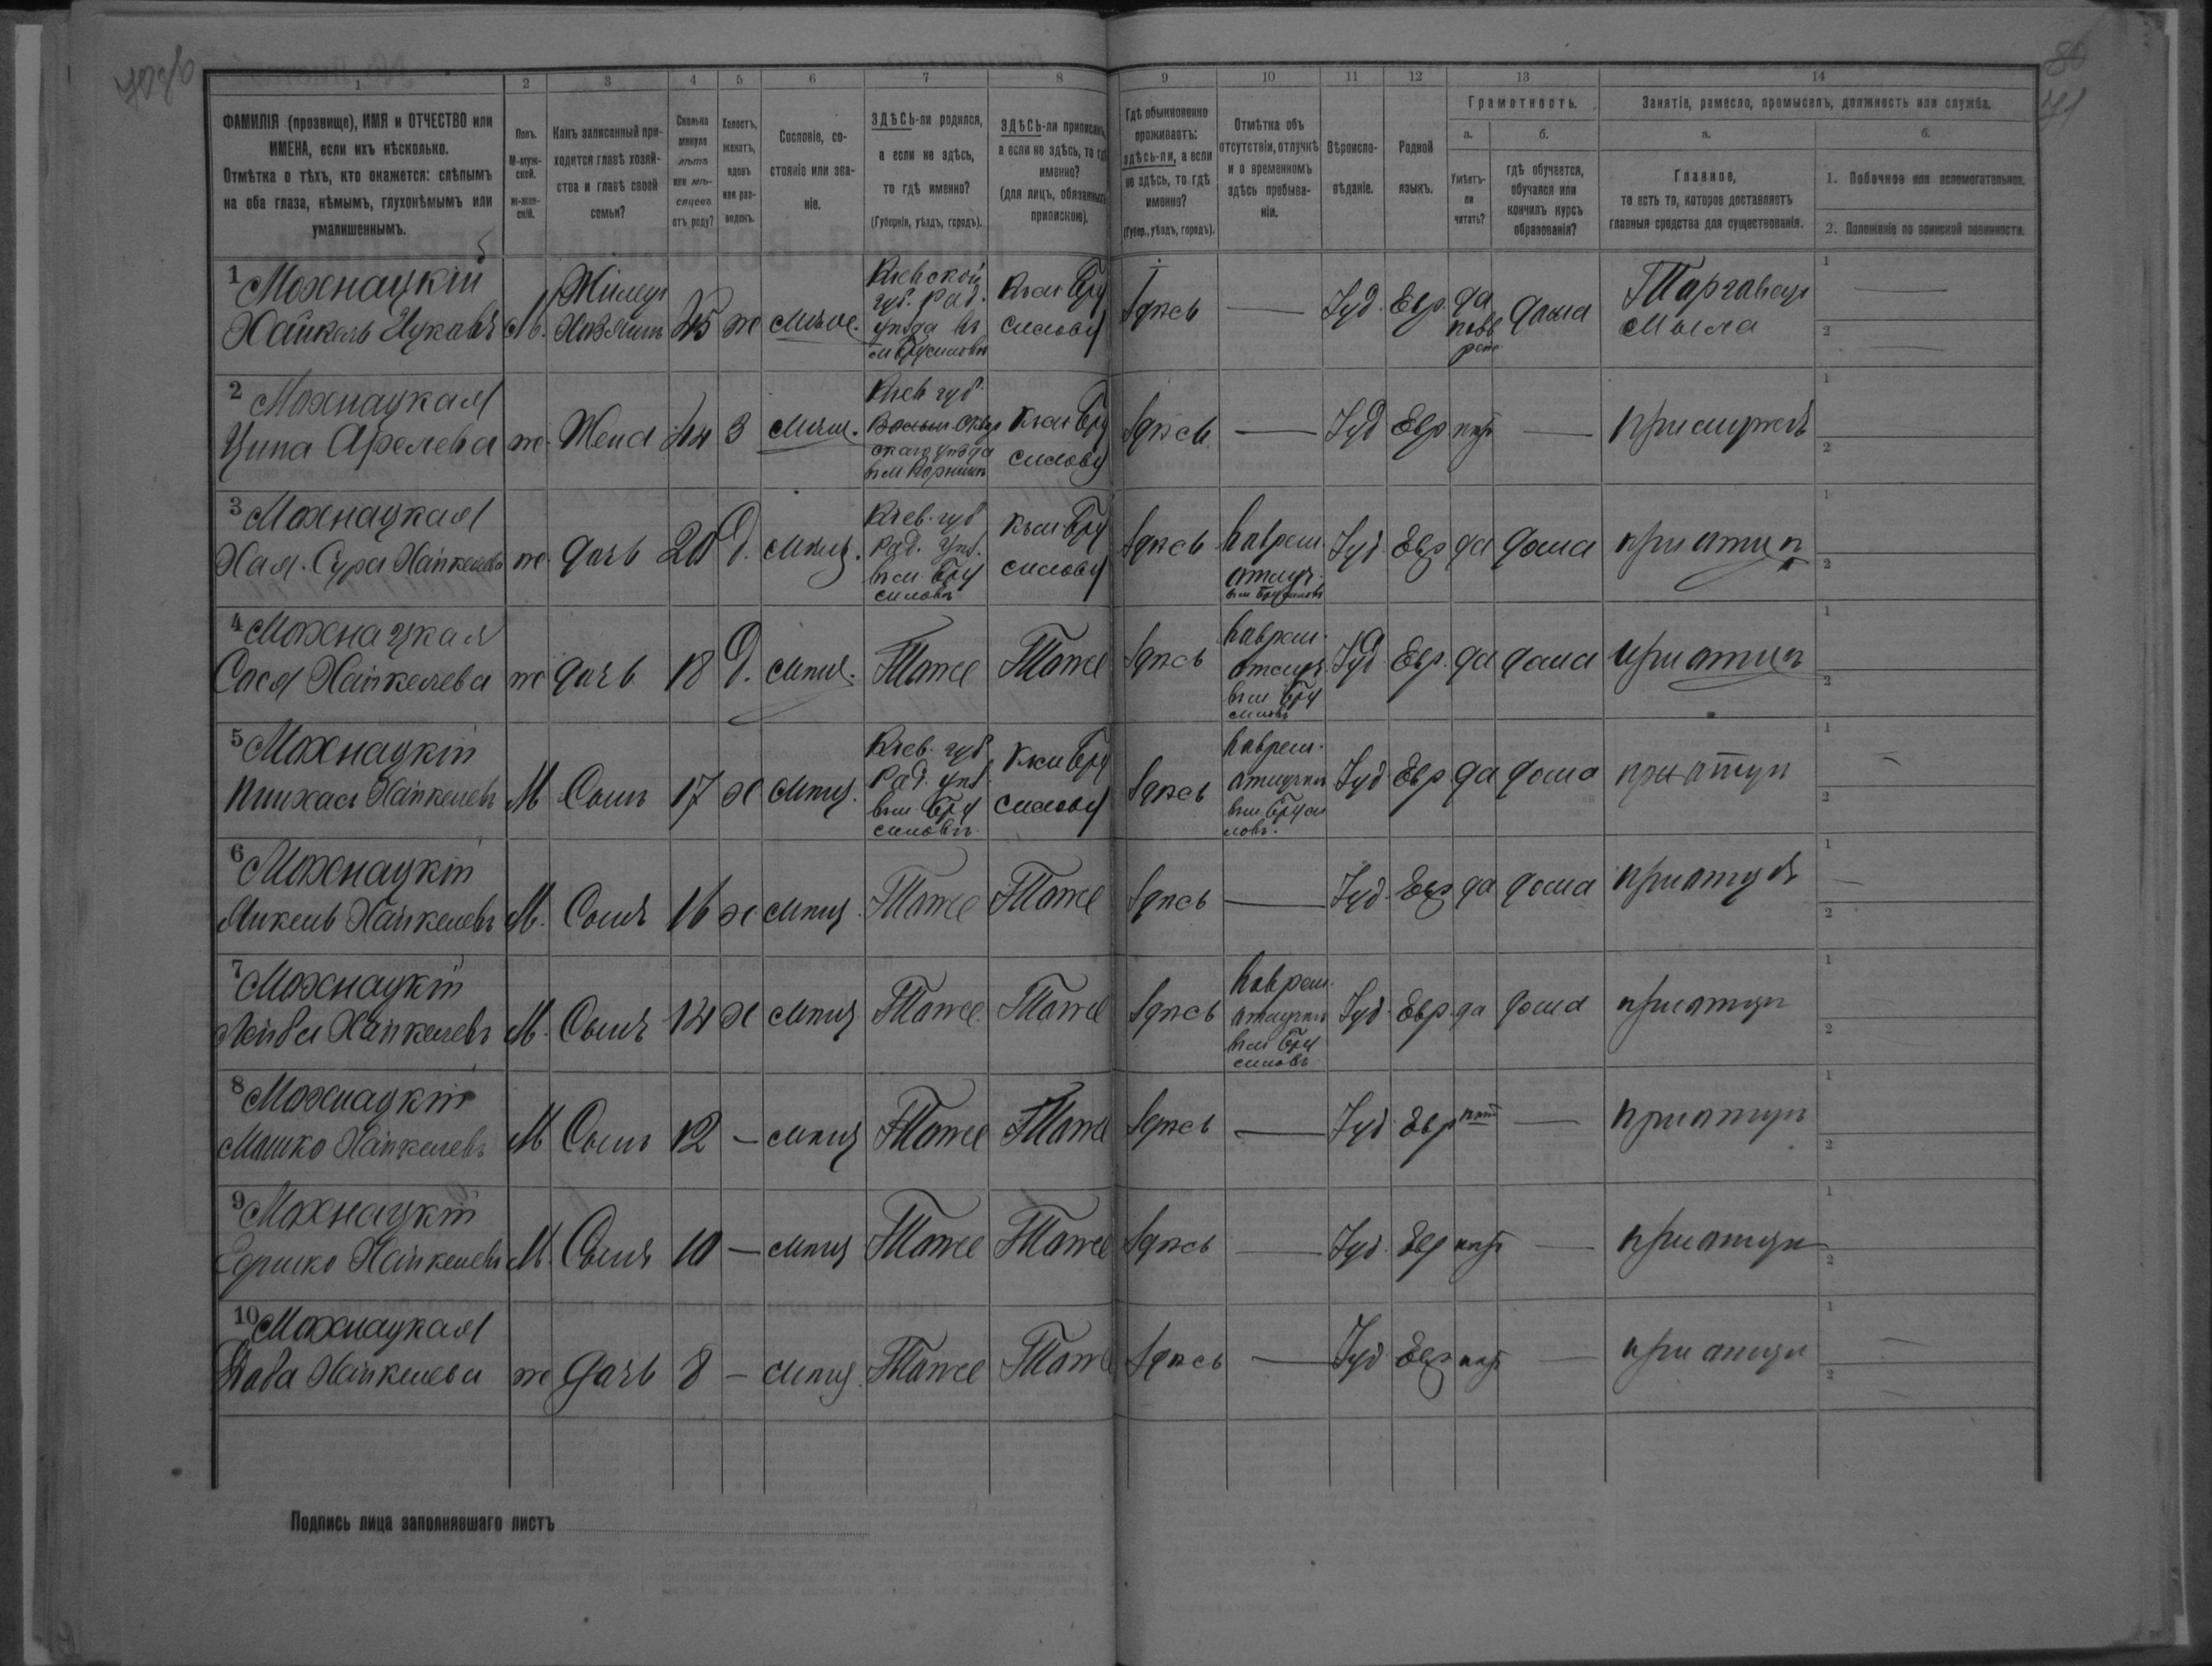 80
41
1 2 3 4 5 6 7 8 9 10 11 12 13 14
ФАМИЛІЯ (прозвище), ИМЯ и ОТЧЕСТВО или
ИМЕНА, если ихъ нѣсколько.
Отмѣтка о тѣхъ, кто окажется: слѣпымъ
на оба глаза, нѣмымъ, глухонѣмымъ или
умалишеннымъ.
Полъ.
М-муж-
ской.
ж-жен-
скій.
Какъ записанный при-
ходится главѣ хозяй-
ства и главѣ своей
семьи?
Сколько
минуло
лѣтъ
или мѣ-
сяцевъ
отъ роду?
Холостъ,
женатъ,
вдовъ
или раз-
веденъ.
Сословіе, со-
стояніе или зва-
ніе.
ЗДѢСЬ-ли родился,
а если не здѣсь,
то гдѣ именно?
(Губернія, уѣздъ, городъ).
ЗДѢСЬ-ли приписанъ,
а если не здѣсь, то гдѣ
именно?
(для лицъ, обязанныхъ
припискою).
Гдѣ обыкновенно
проживаетъ:
здѣсь-ли, а если
не здѣсь, то гдѣ
именно?
(Губер., уѣздъ, городъ).
Отмѣтка объ
отсутствіи, отлучкѣ
и о временномъ
здѣсь пребыва-
ніи.
Вѣроиспо-
вѣданіе.
Родной
языкъ.
Грамотность.
а.
б.
Умѣетъ-
ли
читать?
гдѣ обучается,
обучался или
кончилъ курсъ
образованія?
Занятіе, ремесло, промыселъ, должность или служба.
а.
б.
Главное,
то есть то, которое доставляетъ
главныя средства для существованія.
1. Побочное или вспомогательное.
2. Положеніе по воинской повинности.
1 Мохнацкій
Хайкель Ицковъ
М.
Хозяинъ
45
ж
Кіевской
губ. Рад.
уѣзда въ
м Брусиловѣ
Къ м Бру
силову
Здѣсь
—
Іуд.
Евр.
да
дома
Торговецъ
мыла
1 —
2 —
2 Мохнацкая
Ципа Арелева
ж.
Жена
44
З
мѣщ.
Кіев губ.
скаго уѣзда
Къ м Бру
силову
Здѣсь
—
Іуд
Евр
нѣт
—
при мужѣ
1
2
3 Мохнацкая
Хая-Сура Хайкелевъ
ж.
дочь
20
д.
мѣщ.
Кіев. губ
Рад. уѣз.
въ м. Бру
силовѣ
Къ м. Бру
силову
Здѣсь
въ м Брусиловѣ
Іуд.
Евр
да
дома
при отцѣ
1
2
4 Мохнацкая
Сося Хайкелева
ж
дочь
18
д.
мѣщ.
Тоже
Тоже
Здѣсь
въ м Бру
силовѣ
Іуд
Евр.
да
дома
при отцѣ
1
2
5 Мохнацкій
Пинхас Хайкелевъ
М
Сынъ
17
х
мѣщ.
Кіев. губ
Рад. уѣз.
въ м Бру
силовѣ.
Къ м Бру
силову
Здѣсь
въ м Бруси
ловѣ.
Іуд.
Евр
да
дома
при отцѣ
1 —
2
6 Мохнацкій
Янкель Хайкелевъ
М.
Сынъ
16
х
мѣщ.
Тоже
Тоже
Здѣсь
—
Іуд.
Евр
да
дома
при отцѣ
1 —
2
7 Мохнацкій
Лейба Хайкелевъ
М.
Сынъ
14
х
мѣщ
Тоже
Тоже
Здѣсь
въ м Бру
силовѣ
Іуд.
Евр.
да
дома
при отцѣ
1
2
8 Мохнацкій
Мошко Хайкелевъ
М
Сынъ
12
—
мѣщ
Тоже
Тоже
Здѣсь
—
Іуд.
Евр
нѣт
—
при отцѣ
1
2
9 Мохнацкій
Гершко Хайкелевъ
М.
Сынъ
10
—
мѣщ
Тоже
Тоже
Здѣсь
—
Іуд.
Евр
нѣт
—
при отцѣ
1
2
10 Мохнацкая
Хайкелева
ж
дочь
8
—
мѣщ.
Тоже
Тоже
Здѣсь
—
Іуд.
Евр
нѣт
—
при отцѣ
1 —
2 —
Подпись лица заполнявшаго листъ